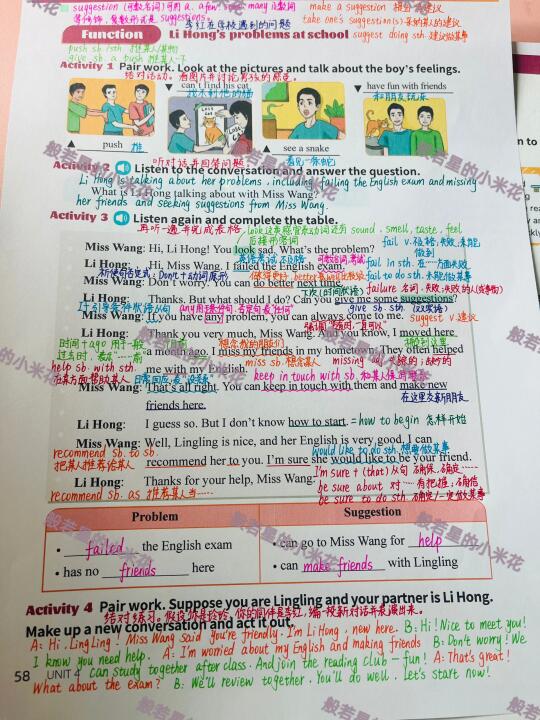 suggestion (可数名词) 可用 a, a few, some, many 以数词
等修饰, 复数形式是 suggestions.
李红在学校遇到的问题
make a suggestion 提出 建议
take one's suggestion(s) 采纳某人的建议
suggest doing sth. 建议做某事
Function Li Hong's problems at school
push sb./sth. 推某人/某物
give sb. a push 推某人一下
Activity 1 Pair work. Look at the pictures and talk about the boy's feelings.
结对活动。看图片并讨论男孩的感觉。
can't find his cat
找不到他的猫
have fun with friends
和朋友玩乐
push 推
see a snake
看见一条蛇
听对话并回答问题
Activity 2 Listen to the conversation and answer the question.
What is Li Hong talking about with Miss Wang?
Li Hong is talking about her problems, including failing the English exam and missing
her friends and seeking suggestions from Miss Wang.
Activity 3 Listen again and complete the table.
再听一遍并完成表格
look 这类感官系动词还有 sound, smell, taste, feel
后接形容词
Miss Wang: Hi, Li Hong! You look sad. What's the problem?
fail v. 不及格; 失败; 未能
做到
英语考试不及格 可数名词, 考试
Li Hong: Hi, Miss Wang. I failed the English exam.
fail in sth. 在……方面失败
祈使句否定式: Don't + 动词原形
Miss Wang: Don't worry. You can do better next time.
fail to do sth. 未能做某事
failure 名词: 失败; 失败的人 (或事物)
下次 (时间状语)
Li Hong: Thanks. But what should I do? Can you give me some suggestions?
give sb. sth. (双宾语)
if 引导条件状语从句
Miss Wang: If you have any problem, you can always come to me.
suggest v. 建议
Li Hong: Thank you very much, Miss Wang. And you know, I moved here
时间+ago 用于一般
过去时, 表“……前”
一个月前 想念我的朋友们 搬到这里
a month ago. I miss my friends in my hometown. They often helped
me with my English.
miss sb. 想念某人 missing adj. 失踪的; 缺少的
help sb. with sth.
在某方面帮助某人
keep in touch with sb. 和某人保持联系
Miss Wang: That's all right. You can keep in touch with them and make new
friends here.
在这里交新朋友
Li Hong: I guess so. But I don't know how to start.
= how to begin 怎样开始
Miss Wang: Well, Lingling is nice, and her English is very good. I can
would like to do sth. 想要做某事
recommend sb. to sb.
把某人推荐给某人
recommend her to you. I'm sure she would like to be your friend.
Li Hong: Thanks for your help, Miss Wang.
I'm sure + (that) 从句 确保, 确定……
be sure about 对……有把握; 确信
be sure to do sth. 确定/一定做某事
recommend sb. as 推荐某人当……
Problem Suggestion
• failed the English exam
• can go to Miss Wang for help
• has no friends here
• can make friends with Lingling
Activity 4 Pair work. Suppose you are Lingling and your partner is Li Hong.
结对练习。假设你是玲玲, 你的同伴是李红, 编一段新对话并表演出来。
Make up a new conversation and act it out.
B: Hi! Nice to meet you!
A: Hi, Ling Ling! Miss Wang said you're friendly. I'm Li Hong, new here.
I know you need help. A: I'm worried about my English and making friends B: Don't worry! We
can study together after class. And join the reading club — fun! A: That's great!
What about the exam? B: We'll review together. You'll do well. Let's start now!
58 UNIT 4
般若星的小米花